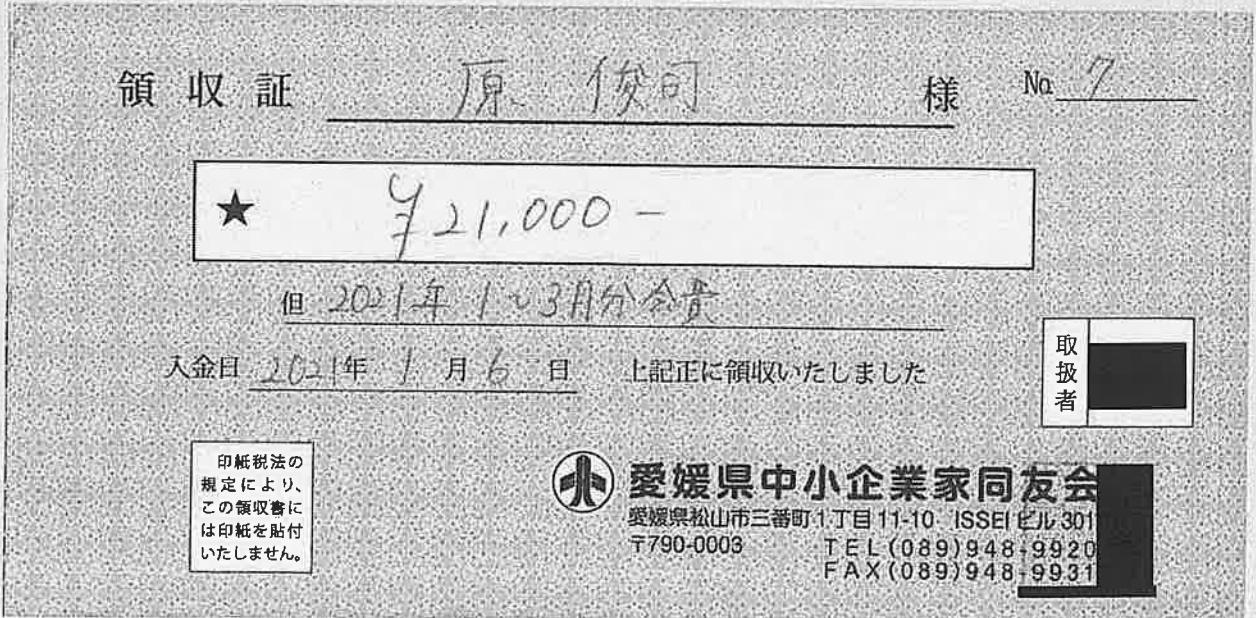 領収証 原 俊司 様 No. 7
★ ¥21,000-
但 2021年1~3月分会費
入金日 2021年 1月 6日 上記正に領収いたしました
取扱者
印紙税法の
規定により、
この領収書に
は印紙を貼付
いたしません。
愛媛県中小企業家同友会
愛媛県松山市三番町1丁目11-10 ISSEIビル301
〒790-0003 TEL(089)948-9920
FAX(089)948-9931